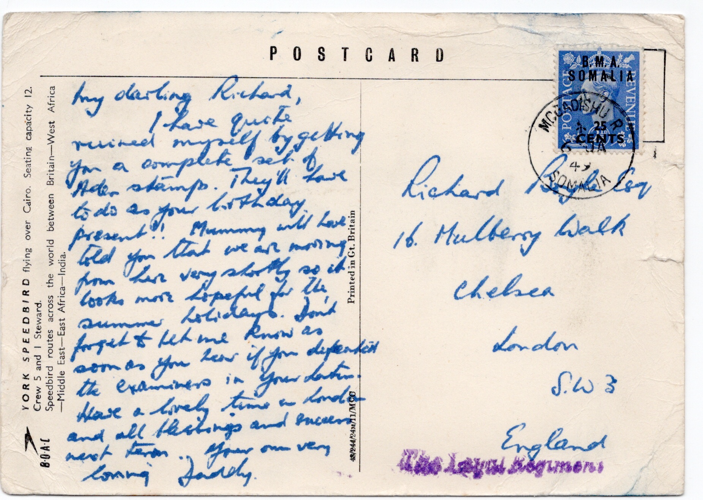 POSTCARD
YORK SPEEDBIRD flying over Cairo. Seating capacity 12.
Crew 5 and 1 Steward.
Speedbird routes across the world between Britain—West Africa
—Middle East—East Africa—India.
BOAC
My darling Richard,
I have quite
ruined myself by getting
you a complete set of
Aden stamps. They'll have
to do as your birthday
present!! Mummy will have
told you that we are moving
from here very shortly so it
looks more hopeful for the
summer holidays. Don't
forget to let me know as
soon as you hear if you
the examiners in your Latin.
Have a lovely time in London
and all blessings and success
next term. Your own very
loving Daddy.
Printed in Gt. Britain
B.M.A.
SOMALIA
POSTAGE
REVENUE
25
CENTS
MOGADISHU
JA
49
SOMALIA
Richard Esq
16. Mulberry Walk
Chelsea
London
S.W 3
England
The Loyal Regiment